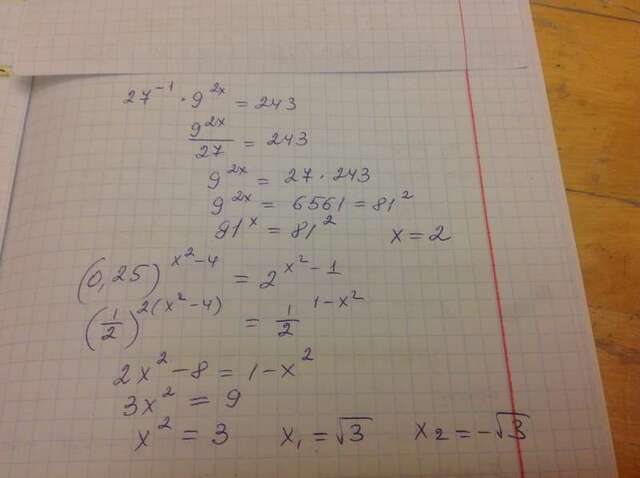 27⁻¹ · 9²ˣ = 243
9²ˣ/27 = 243
9²ˣ = 27 · 243
9²ˣ = 6561 = 81²
91ˣ = 81² x = 2
(0,25)^(x²-4) = 2^(x²-1)
(1/2)^(2(x²-4)) = 1/2^(1-x²)
2x² - 8 = 1 - x²
3x² = 9
x² = 3 x₁ = √3 x₂ = -√3